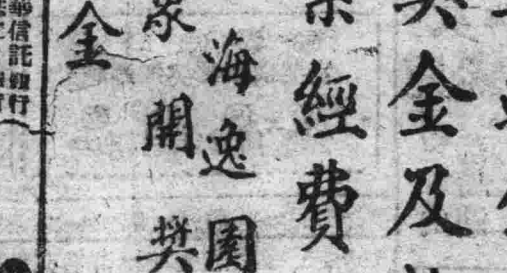 獎金及
經費
海逸園
開獎
金
信託銀行